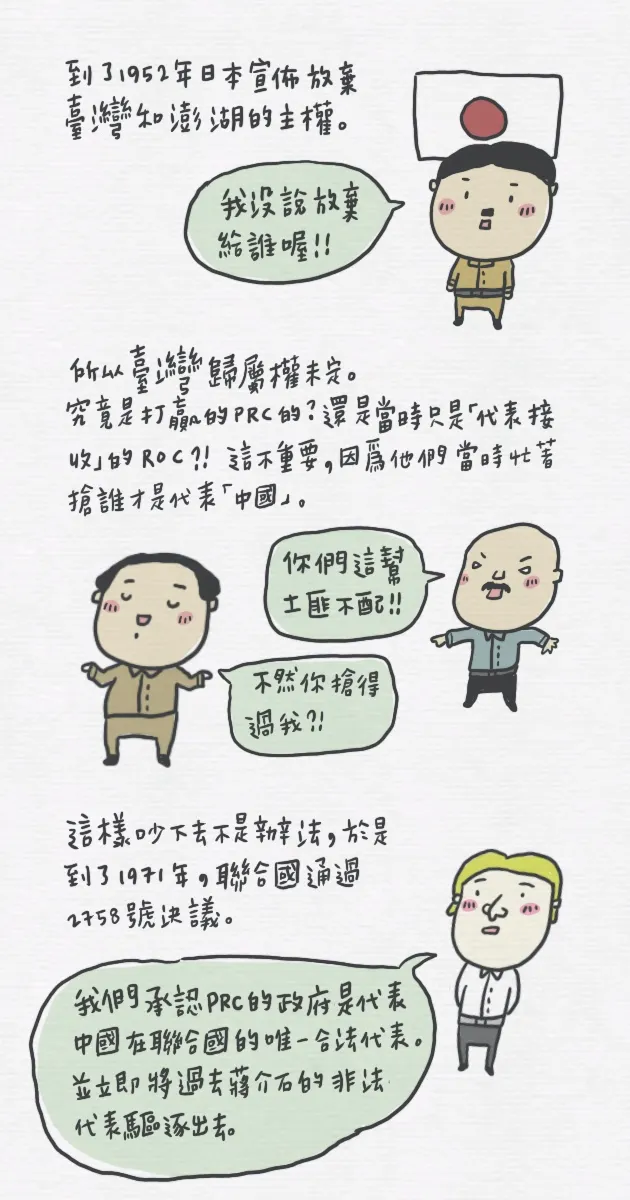 到了1952年日本宣佈放棄
臺灣和澎湖的主權。
我沒說放棄
給誰喔!!
所以臺灣歸屬權未定。
究竟是打贏的PRC的?還是當時只是「代表接
收」的ROC?! 這不重要,因爲他們當時忙著
搶誰才是代表「中國」。
你們這幫
土匪不配!!
不然你搶得
過我?!
這樣吵下去不是辦法,於是
到了1971年,聯合國通過
2758號決議。
我們承認PRC的政府是代表
中國在聯合國的唯一合法代表。
並立即將過去蔣介石的非法
代表驅逐出去。